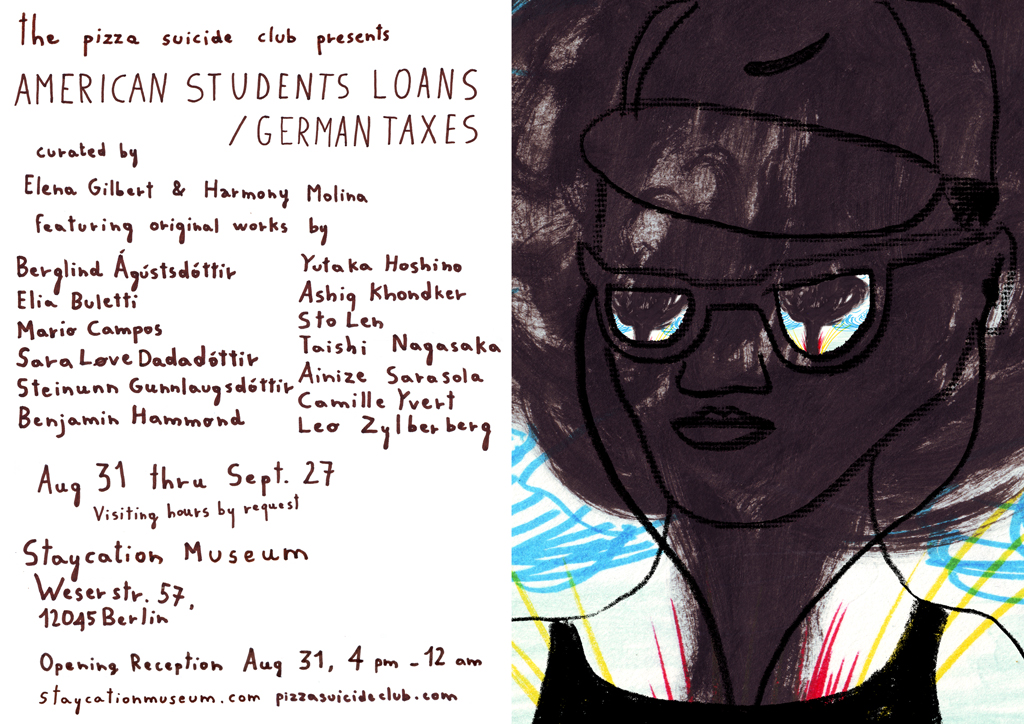 the pizza suicide club presents
AMERICAN STUDENTS LOANS
/GERMAN TAXES
curated by
Elena Gilbert & Harmony Molina
featuring original works by
Berglind Ágústsdóttir
Elia Buletti
Mario Campos
Sara Løve Dadadóttir
Steinunn Gunnlaugsdóttir
Benjamin Hammond
Yutaka Hoshino
Ashiq Khondker
Sto Len
Taishi Nagasaka
Ainize Sarasola
Camille Yvert
Leo Zylberberg
Aug 31 thru Sept. 27
Visiting hours by request
Staycation Museum
Weserstr. 57,
12045 Berlin
Opening Reception Aug 31, 4 pm - 12 am
staycationmuseum.com pizzasuicideclub.com